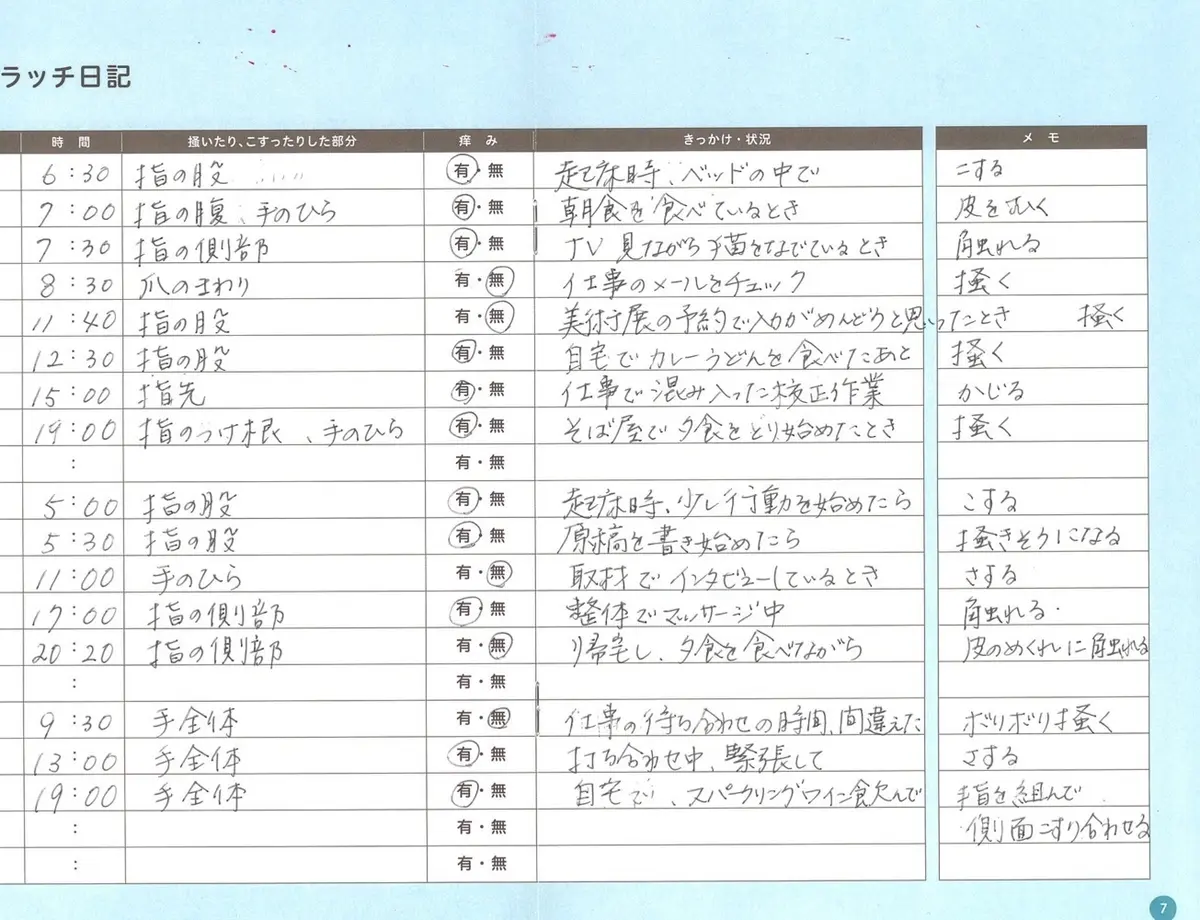 ラッチ日記
時間 掻いたり、こすったりした部分 痒み きっかけ・状況 メモ
6:30 指の股 有・無 起床時、ベッドの中で こする
7:00 指の腹、手のひら 有・無 朝食を食べているとき 皮をむく
7:30 指の側部 有・無 TV見ながら猫をなでているとき 触れる
8:30 爪のまわり 有・無 仕事のメールをチェック 掻く
11:40 指の股 有・無 美術展の予約で入力がめんどうと思ったとき 掻く
12:30 指の股 有・無 自宅でカレーうどんを食べたあと 掻く
15:00 指先 有・無 仕事で混み入った校正作業 かじる
19:00 指のつけ根、手のひら 有・無 そば屋で夕食をとり始めたとき 掻く
: 有・無
5:00 指の股 有・無 起床時、少し行動を始めたら こする
5:30 指の股 有・無 原稿を書き始めたら 掻きそうになる
11:00 手のひら 有・無 取材でインタビューしているとき さする
17:00 指の側部 有・無 整体でマッサージ中 触れる
20:20 指の側部 有・無 帰宅し、夕食を食べながら 皮のめくれに触れる
: 有・無
9:30 手全体 有・無 仕事の待ち合わせの時間、間違えた ボリボリ掻く
13:00 手全体 有・無 打ち合わせ中、緊張して さする
19:00 手全体 有・無 自宅で、スパークリングワイン飲んで 指を組んで
: 有・無 側面こすり合わせる
: 有・無
7